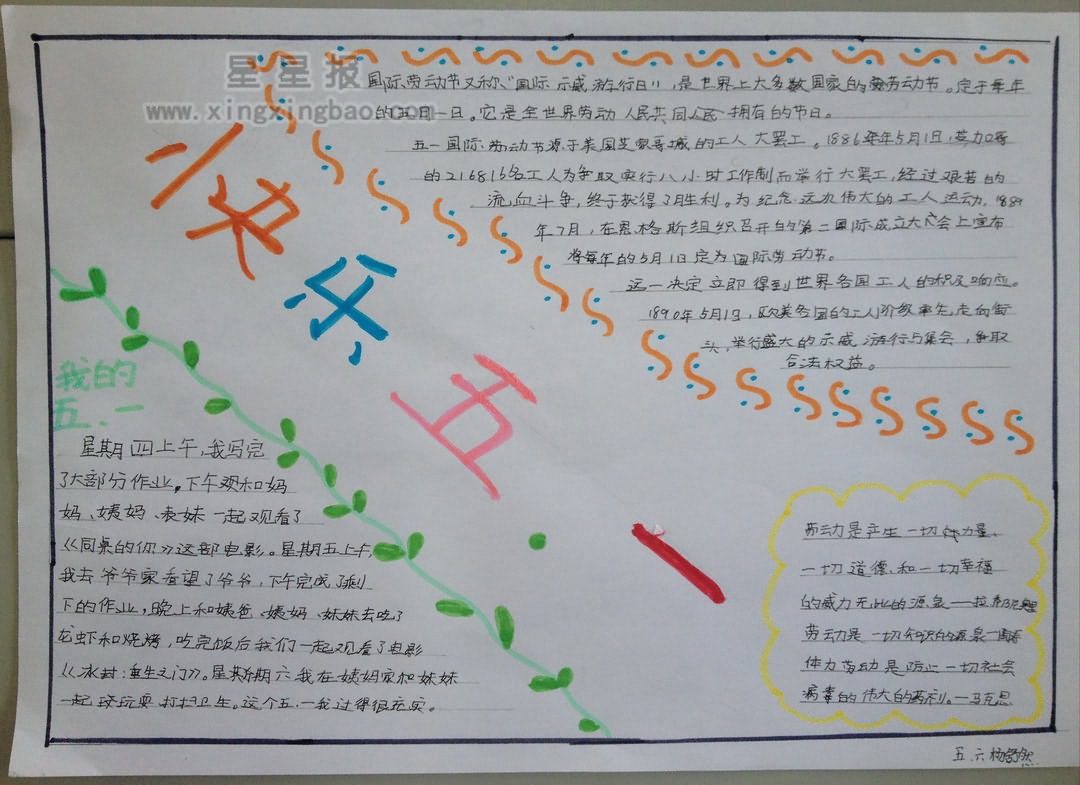 星星报
www.xingxingbao.com
国际劳动节又称"国际示威游行日",是世界上大多数国家的劳动节。定于每年
的五月一日。它是全世界劳动人民共同人民拥有的节日。
五一国际劳动节源于美国芝家哥城的工人大罢工。1886年5月1日,芝加哥
的216816名工人为争取实行八小时工作制而举行大罢工,经过艰苦的
流血斗争,终于获得了胜利。为纪念这次伟大的工人运动,1889
年7月,在恩格斯组织召开的第二国际成立大会上宣布
将每年的5月1日定为国际劳动节。
这一决定立即得到世界各国工人的积极响应。
1890年5月1日,欧美各国的工人阶级率先走向街
头,举行盛大的示威游行与集会,争取
合法权益。
快乐五一
我的
五.一
星期四上午,我写完
了大部分作业。下午观和妈
妈、姨妈、表妹一起观看了
《同桌的你》这部电影。星期五上午,
我去爷爷家看望了爷爷,下午完成了剩
下的作业,晚上和姨爸、姨妈、妹妹去吃了
龙虾和烧烤,吃完饭后我们一起观看了电影
《冰封:重生之门》。星期六我在姨妈家和妹妹
一起玩耍打扫卫生。这个五一我过得很充实。
劳动是产生一切力量、
一切道德和一切幸福
的威力无比的源泉——拉
劳动是一切知识的源泉一
体力劳动是防止一切社会
病毒的伟大的药剂。—马克思
五.六 杨舒然